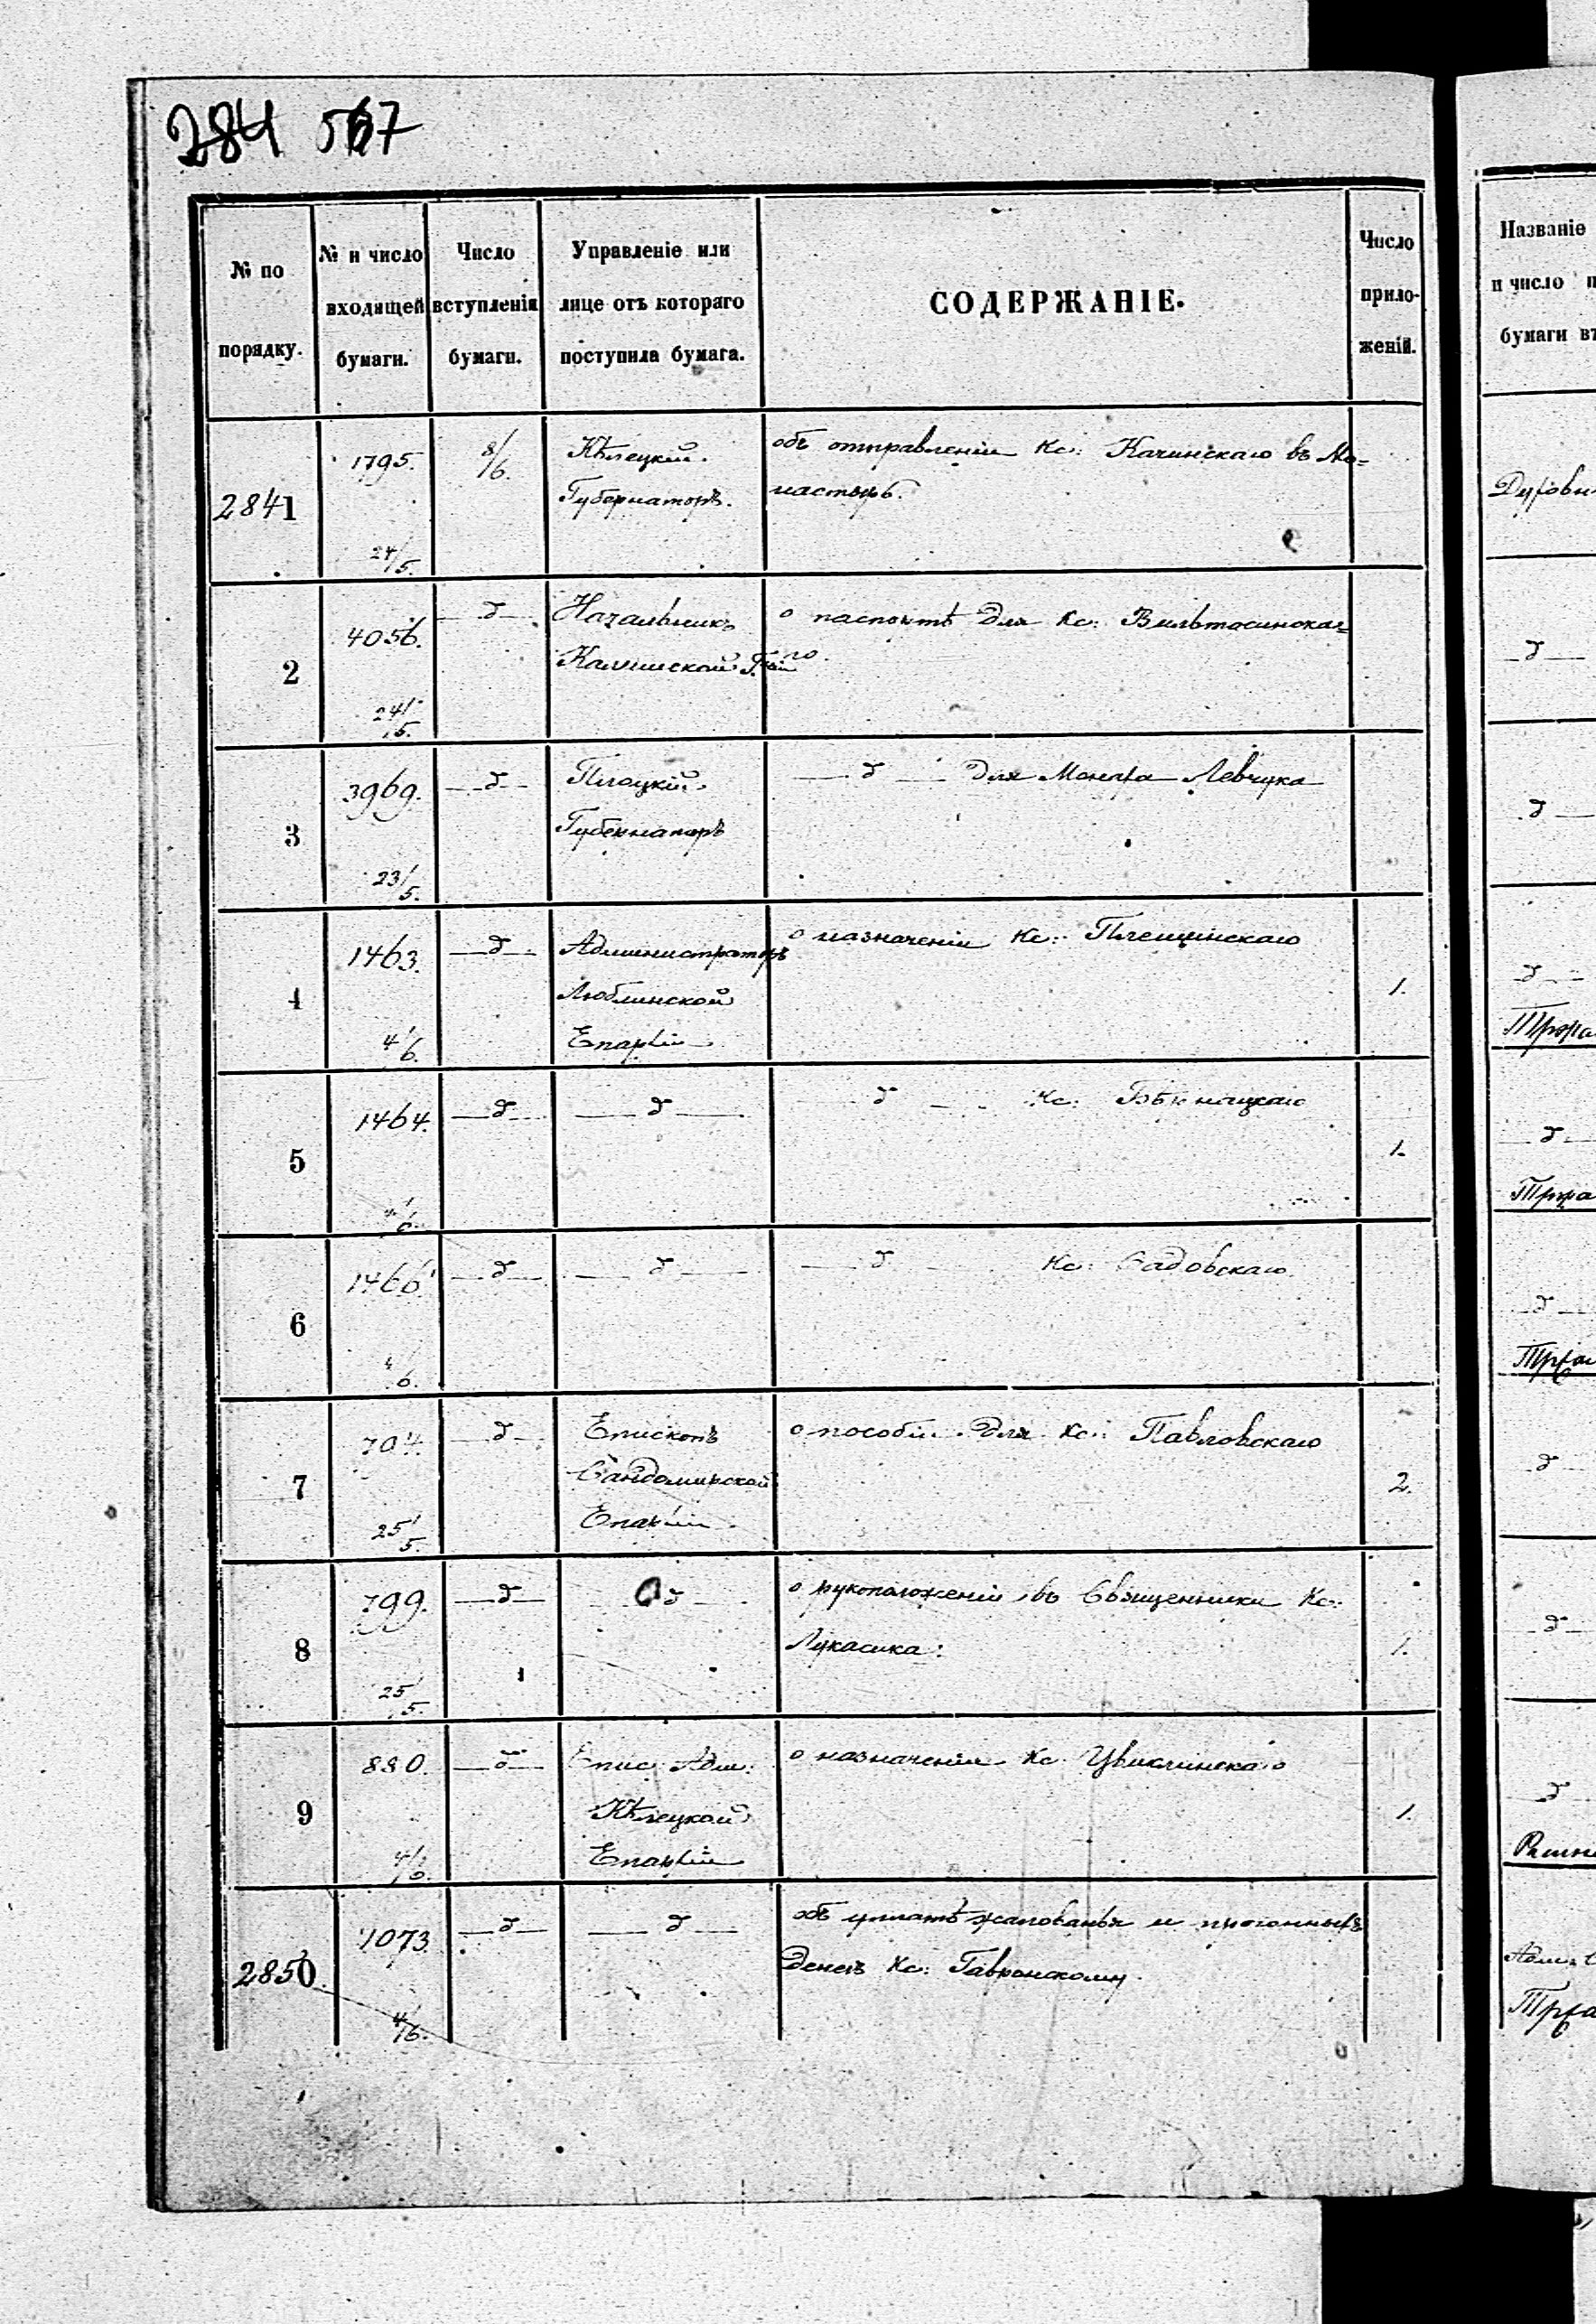 284 567
№ по порядку.
№ и число входящей бумаги.
Число вступленія бумаги.
Управленіе или лице отъ котораго поступила бумага.
СОДЕРЖАНІЕ.
Число прило-
женій.
2841
1795.
24/5.
8/6.
Кѣлецкій
Губернаторъ.
объ отправленіи Кс: Качинскаго въ Мо=
настырь.
2
4056.
24/5.
— д —
Начальникъ
Калишской Губ
о паспортѣ для Кс:
го.
3
3969.
23/5.
— д —
Плоцкій
Губернаторъ
— д — для Монаха Левчука
4
1463.
4/6.
— д —
Администраторъ
Люблинской
Епархіи
о назначеніи Кс: Плещинскаго
1.
5
1464.
4/6.
— д —
— д —
— д — Кс:
1.
6
1466.
4/6.
— д —
— д —
— д — Кс: Садовскаго
7
704.
25/5.
— д —
Епископъ
Сандомирской
Епархіи
о пособіи для Кс: Павловскаго
2.
8
799.
25/5.
— д —
— д —
о рукоположеніи въ Священники Кс:
Лукасика:
1.
9
880.
4/6.
— д —
Епис: Адм:
Кѣлецкой
Епархіи
о назначеніи Кс: Цвиклинскаго
1.
2850.
1073.
4/6.
— д —
— д —
объ уплатѣ жалованья и прогонныхъ
денегъ Кс: Гавронскому.
Названіе
и число
бумаги
Духовн
— д —
д —
д —
— д —
д —
д
— д —
д
Адм.